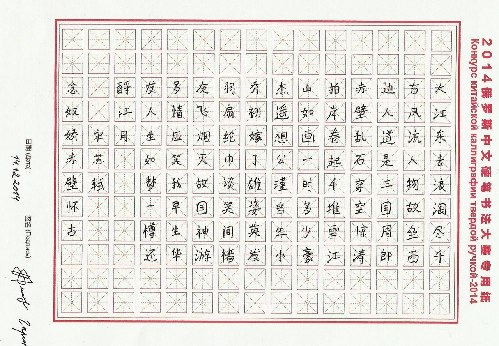 2014俄罗斯中文硬笔书法大赛专用纸
Конкурс китайской каллиграфии твердой ручкой-2014
大江东去浪淘尽千
古风流人物故垒西
边人道是三国周郎
赤壁乱石穿空惊涛
拍岸卷起千堆雪江
山如画一时多少豪
杰遥想公瑾当年小
乔初嫁了雄姿英发
羽扇纶巾谈笑间樯
灰飞烟灭故国神游
多情应笑我早生华
发人生如梦一樽还
酹江月
宋苏轼
念奴娇赤壁怀古
日期(Дата)
签名(Подпись)